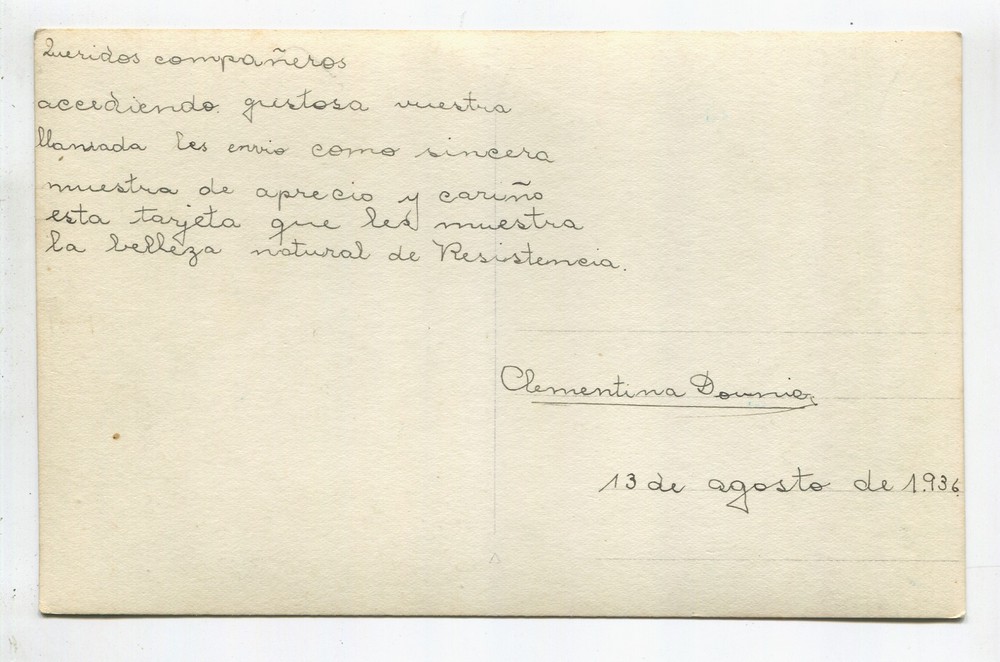 Queridos compañeros
accediendo gustosa vuestra
llamada les envio como sincera
muestra de aprecio y cariño
esta tarjeta que les muestra
la belleza natural de Resistencia.
Clementina
13 de agosto de 1.936